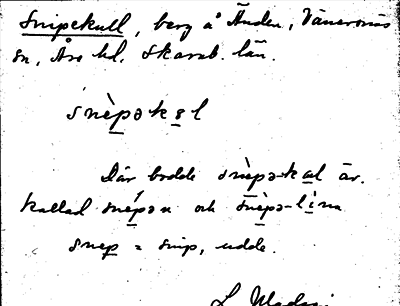 Snipekull, berg å Änden, Vänersnäs
sn, Åse hd. Skarab. län.
snèpəkul
Där bodde snèpə-kal är.
kallad snépən och snèpə-lina
snep = snip, udde.